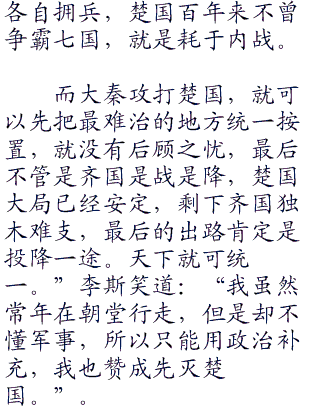 各自拥兵，楚国百年来不曾
争霸七国，就是耗于内战。
而大秦攻打楚国，就可
以先把最难治的地方统一按
置，就没有后顾之忧，最后
不管是齐国是战是降，楚国
大局已经安定，剩下齐国独
木难支，最后的出路肯定是
投降一途。天下就可统
一。”李斯笑道：“我虽然
常年在朝堂行走，但是却不
懂军事，所以只能用政治补
充，我也赞成先灭楚
国。”。